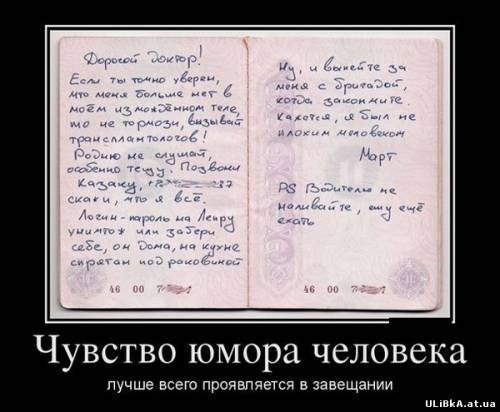 Дорогой Доктор!
Если ты точно уверен,
что меня больше нет в
моём измождённом теле,
то не тормози, вызывай
трансплантологов!
Родню не слушай,
особенно тещу. Позвони
Казаку,
скажи, что я всё.
Логин-пароль на Лепру
уничтож или забери
себе, он дома, на кухне
спрятан под раковиной
46 00 7
Ну, и выпейте за
меня с бригадой,
когда закончите.
Кажется, я был не
плохим человеком
Март
PS Водителю не
наливайте, ему ещё
ехать
46 00 7
Чувство юмора человека
лучше всего проявляется в завещании
ULiBkA.at.ua